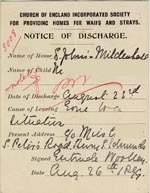 CHURCH OF ENGLAND INCORPORATED SOCIETY
FOR PROVIDING HOMES FOR WAIFS AND STRAYS.
NOTICE OF DISCHARGE.
Name of Home S. John's - Mildenhall
Name of Child
Date of August 23rd
Cause of Leaving Gone to a
situation
Present Address c/o Miss
S. Peter's Road Bury S. Edmunds
Signed Gertrude Woolley
Date Aug. 26th